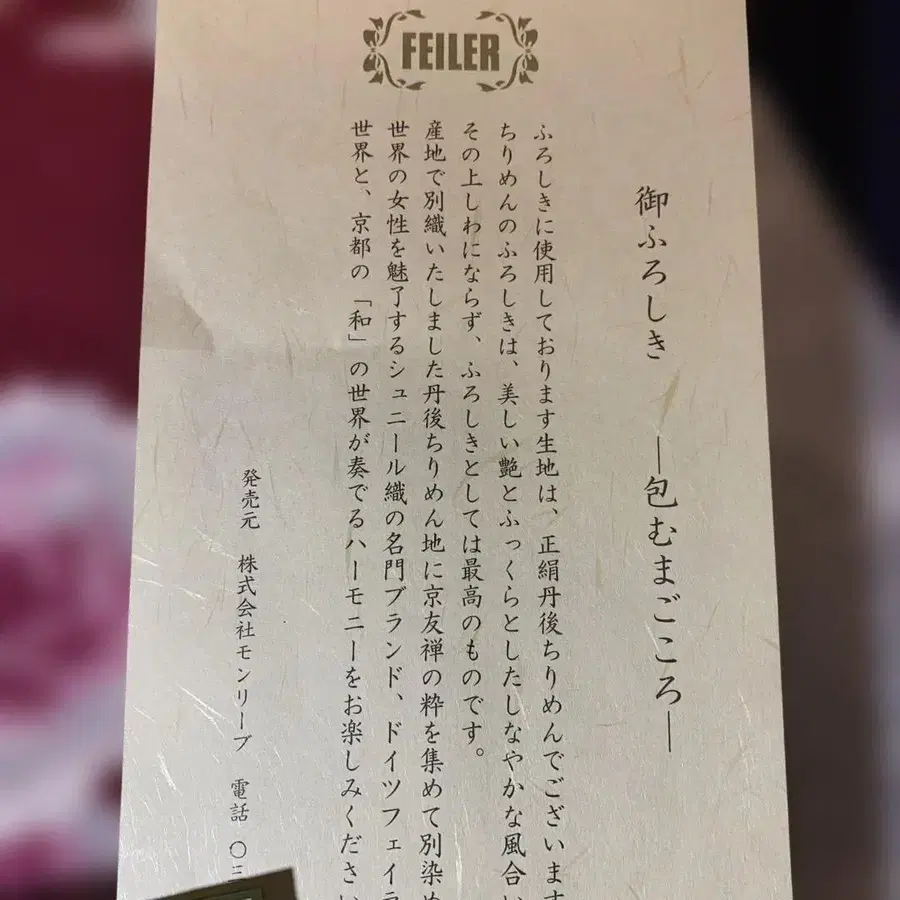 FEILER
御ふろしき ―包むまごころ―
ふろしきに使用しております生地は、正絹丹後ちりめんでございます
ちりめんのふろしきは、美しい艶とふっくらとしたしなやかな風合い
その上しわにならず、ふろしきとしては最高のものです。
産地で別織いたしました丹後ちりめん地に京友禅の粋を集めて別染め
世界の女性を魅了するシュニール織の名門ブランド、ドイツフェイラ
世界と、京都の「和」の世界が奏でるハーモニーをお楽しみください
発売元 株式会社モンリーブ 電話 〇三